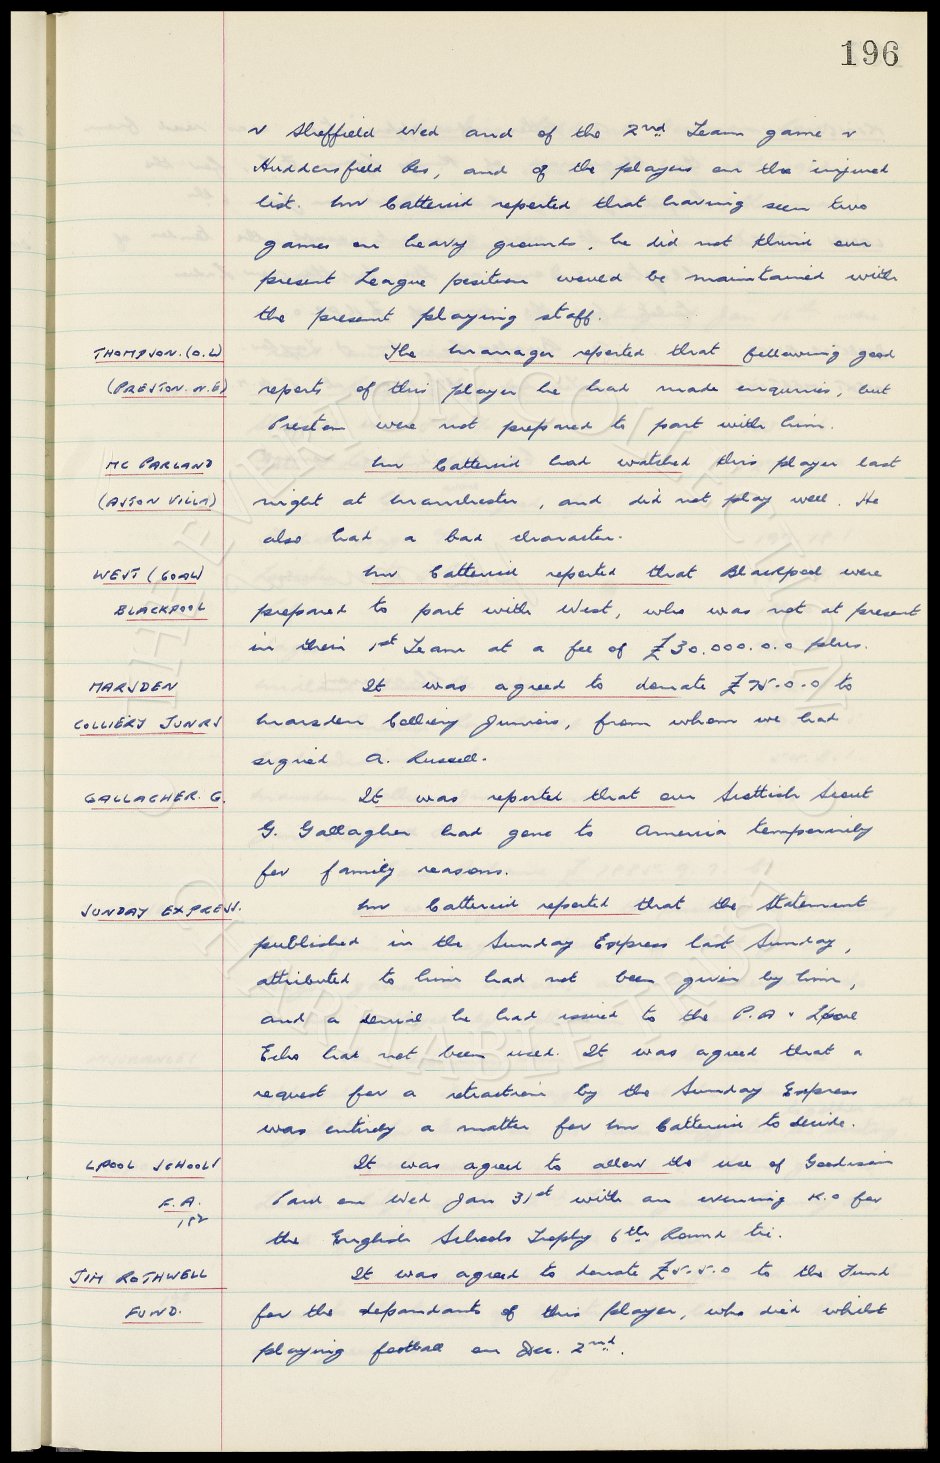 196
v Sheffield Wed and of the 2nd Team game v
Huddersfield Res, and of the players on the injured
list. Mr Catterick reported that having seen two
games on heavy grounds, he did not think our
present League position would be maintained with
the present playing staff.
THOMPSON. (O.L) The manager reported that following good
(PRESTON. N.E) reports of this player he had made enquiries, but
Preston were not prepared to part with him.
MC PARLAND Mr Catterick had watched this player last
(ASTON VILLA) night at Manchester, and did not play well. He
also had a bad character.
WEST (GOAL) Mr Catterick reported that Blackpool were
BLACKPOOL prepared to part with West, who was not at present
in their 1st Team at a fee of £30.000.0.0 plus.
MARSDEN It was agreed to donate £75.0.0 to
COLLIERY JUNRS Marsden Colliery Juniors, from whom we had
signed A. Russell.
GALLAGHER. G. It was reported that our Scottish Scout
G. Gallagher had gone to America temporarily
for family reasons.
SUNDAY EXPRESS. Mr Catterick reported that the statement
published in the Sunday Express last Sunday,
attributed to him had not been given by him,
and a denial he had issued to the P.A & Lpool
Echo had not been used. It was agreed that a
request for a retraction by the Sunday Express
was entirely a matter for Mr Catterick to decide.
LPOOL SCHOOLS It was agreed to allow the use of Goodison
F.A. Park on Wed Jan 31st with an evening K.O for
the English Schools Trophy 6th Round tie.
JIM ROTHWELL It was agreed to donate £5.5.0 to the Fund
FUND. for the dependants of this player, who died whilst
playing football on Dec. 2nd.
THE EVERTON COLLECTION
CHARITABLE TRUST